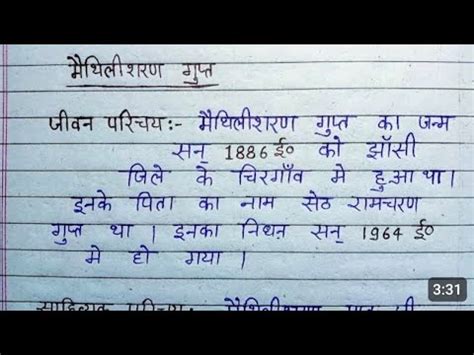 मैथिलीशरण गुप्त
जीवन परिचय:- मैथिलीशरण गुप्त का जन्म
सन् 1886 ई० को झाँसी
जिले के चिरगाँव मे हुआ था।
इनके पिता का नाम सेठ रामचरण
गुप्त था। इनका निधन सन् 1964 ई०
मे हो गया।
साहित्यिक परिचय:- मैथिलीशरण
3:31